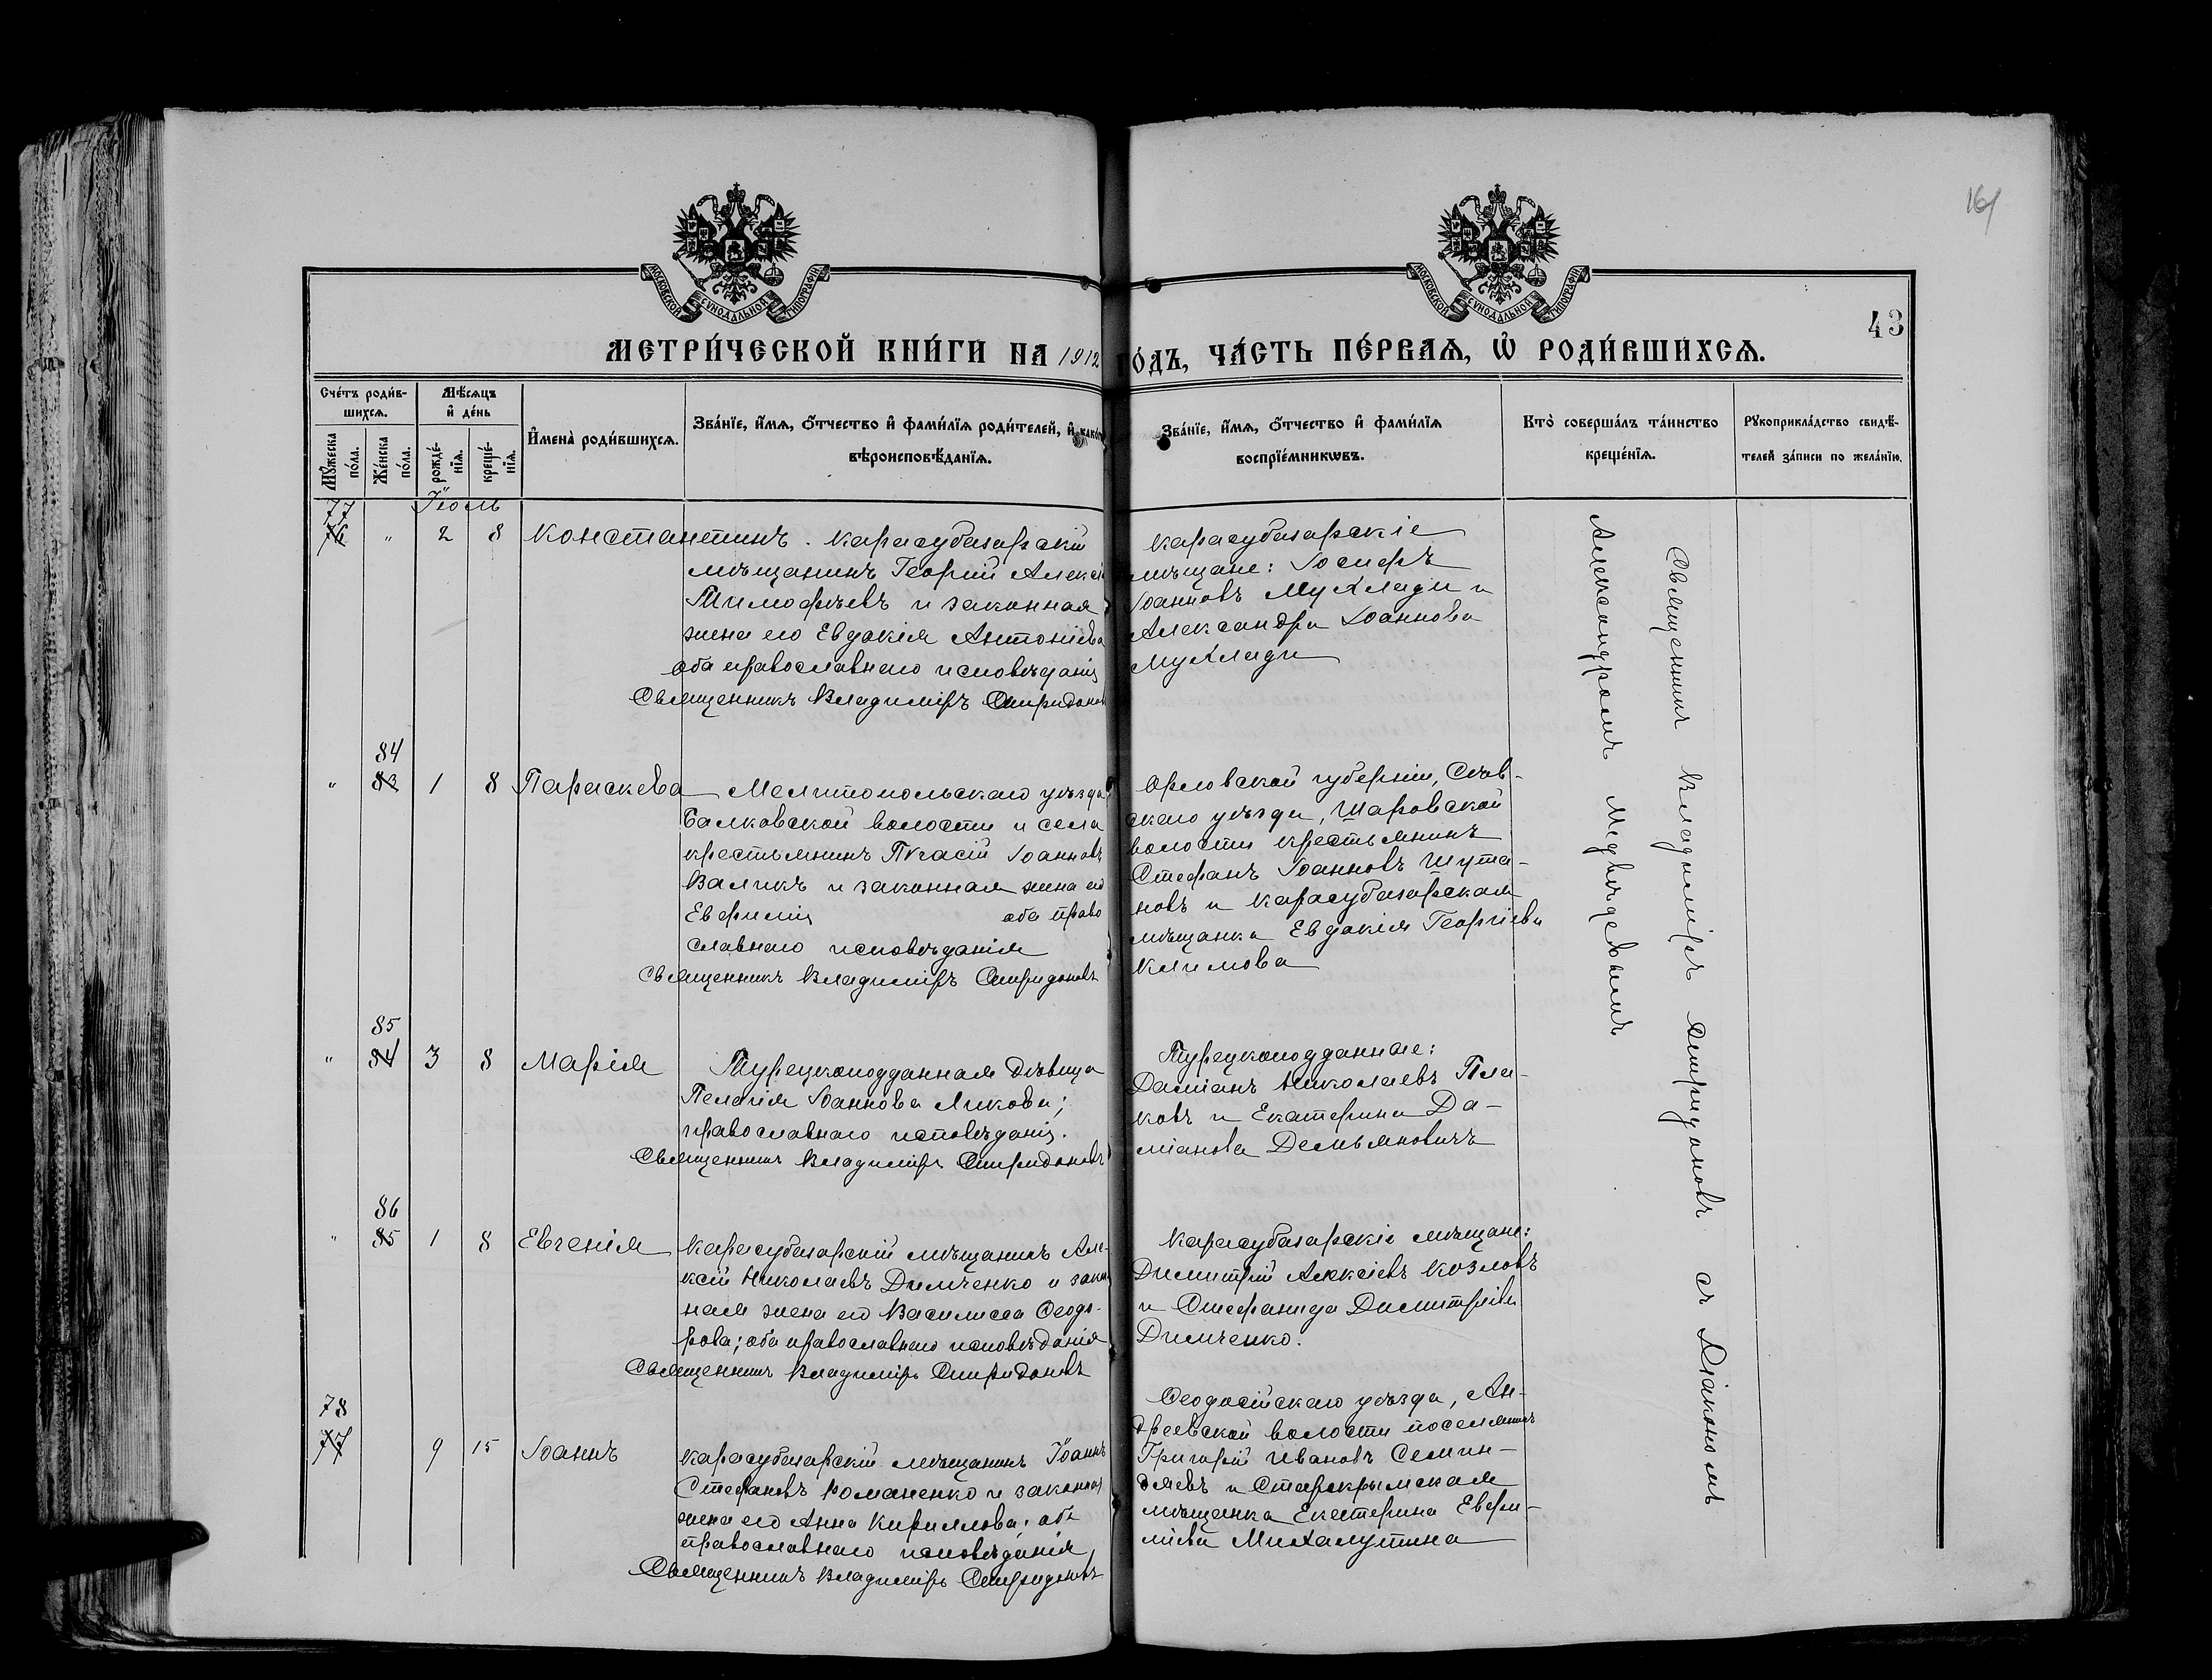 161
МОСКОВСКОЙ СѴНОДАЛЬНОЙ ТИПОГРАФІИ
МОСКОВСКОЙ СѴНОДАЛЬНОЙ ТИПОГРАФІИ
43
МЕТРИ́ЧЕСКОЙ КНИ́ГИ НА 1912 ГО́ДЪ, ЧА́СТЬ ПЕ́РВАѦ, Ѡ҆ РОДИ́ВШИХСѦ.
Сче́тъ роди́в-
шихсѧ.
Мѣ́сѧцъ
и҆ де́нь
Мꙋ́жеска
по́ла.
Же́нска
по́ла.
рожде́-
нїѧ.
креще́-
нїѧ.
И҆мена̀ роди́вшихсѧ.
Зва́нїе, и҆́мѧ, ѻ҆́тчество и҆ фами́лїѧ роди́телей, и҆ како́гѡ
вѣроисповѣ́данїѧ.
Зва́нїе, и҆́мѧ, ѻ҆́тчество и҆ фами́лїѧ
воспрїе́мникѡвъ.
Кто̀ соверша́лъ та́инство
креще́нїѧ.
Рꙋкоприкла́дство свидѣ́-
телей за́писи по жела́нїю.
Іюль
77
76 " 2 8 Константинъ. Карасубазарскій
мѣщанинъ Георгій Алексѣ
Тимофѣевъ и законная
жена его Евдокія Антоніева
оба православнаго исповѣданія
Священникъ Владиміръ Спиридонов
Карасубазарскіе
мѣщане: Іосифъ
Іоанновъ Мухлади и
Александра Іоаннова
Мухлади
84
" 83 1 8 Параскева Мелитопольскаго уѣзда
Балковской волости и села
крестьянинъ Іоанновъ
Валикъ и законная жена его
Евфимія оба право
славнаго исповѣданія
Священникъ Владиміръ Спиридоновъ
Орловской губерніи, Сѣв-
скаго уѣзда, Шаровской
волости крестьянинъ
Стефанъ Іоанновъ Шута-
новъ и Карасубазарская
мѣщанка Евдокія Георгіева
Климова
85
" 84 3 8 Марія Турецкоподданная дѣвица
Пелагія Іоаннова Ликова;
православнаго исповѣданія.
Священникъ Владиміръ Спиридоновъ
Турецкоподданные:
Даміанъ Николаевъ Пла-
ковъ и Екатерина Да-
міанова Демьяновичъ
86
" 85 1 8 Евгенія Карасубазарскій мѣщанинъ Але-
ксій Николаевъ Димченко и закон
ная жена его Василисса Ѳеодо-
рова; оба православнаго исповѣданія
Священникъ Владиміръ Спиридоновъ
Карасубазарскіе мѣщане:
Димитрій Алексіевъ Козловъ
и Стефанида Димитріева
Димченко.
78
77 9 15 Іоаннъ Карасубазарскій мѣщанинъ Іоаннъ
Стефановъ Романенко и законная
жена его Анна Кириллова; оба
православнаго исповѣданія,
Священникъ Владиміръ Спиридоновъ
Ѳеодосійскаго уѣзда, Ан-
дреевской волости поселянинъ
Григорій Ивановъ Семин-
дяевъ и Старокрымская
мѣщанка Екатерина Евфи-
міева Михалутина
Священникъ Владиміръ Спиридоновъ съ Діакономъ
Александромъ Медвѣдевымъ